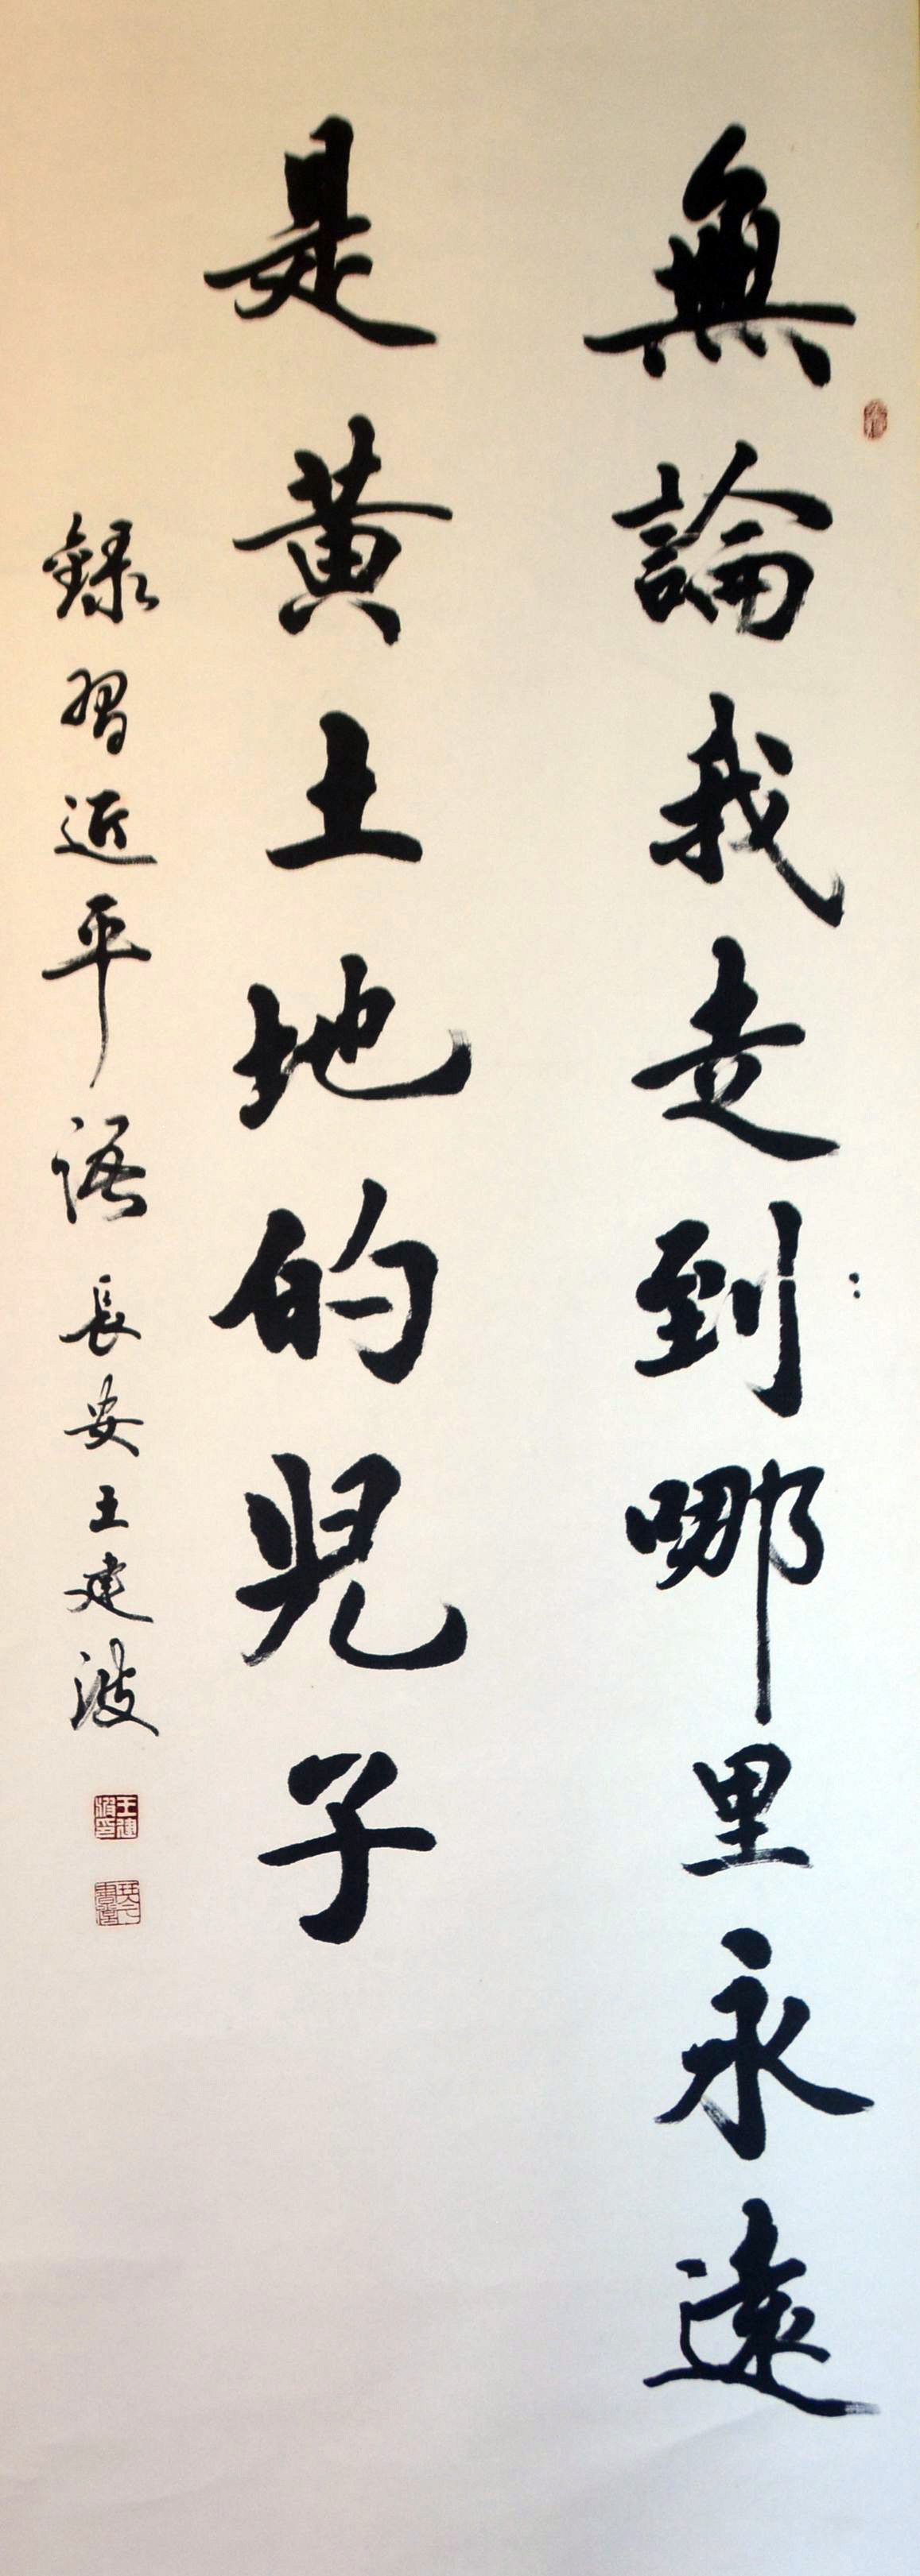 無論我走到哪里永遠
是黃土地的兒子
錄習近平語 長安王建波